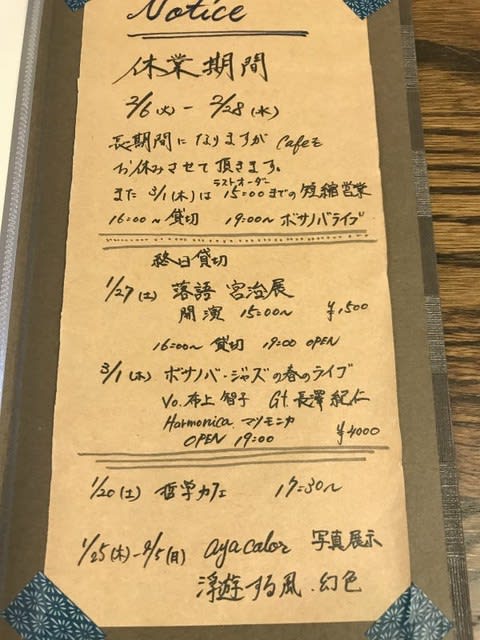 Notice
休業期間
2/6(火) - 2/28(水)
長期間になりますが Cafeも
お休みさせて頂きます。
ラストオーダー
また 3/1(木)は 15:00までの短縮営業
16:00〜貸切 19:00〜 ボサノバライブ
終日貸切
1/27(土) 落語 宮治展
開演 15:00〜 ¥1500
16:00〜 貸切 19:00 OPEN
3/1(木) ボサノバ・ジャズの春のライブ
Vo. 布上智子 Gt. 長澤紀仁
Harmonica. マツモニカ
OPEN 19:00 ¥4000
1/20(土) 哲学カフェ 17:30〜
1/25(木)-2/5(月) ayacalor 写真展示
浮遊する風.幻色